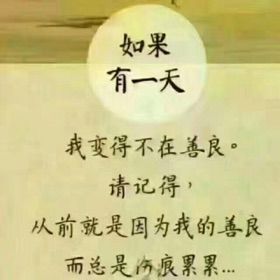 如果
有一天
我变得不在善良。
请记得，
从前就是因为我的善良
而总是伤痕累累...